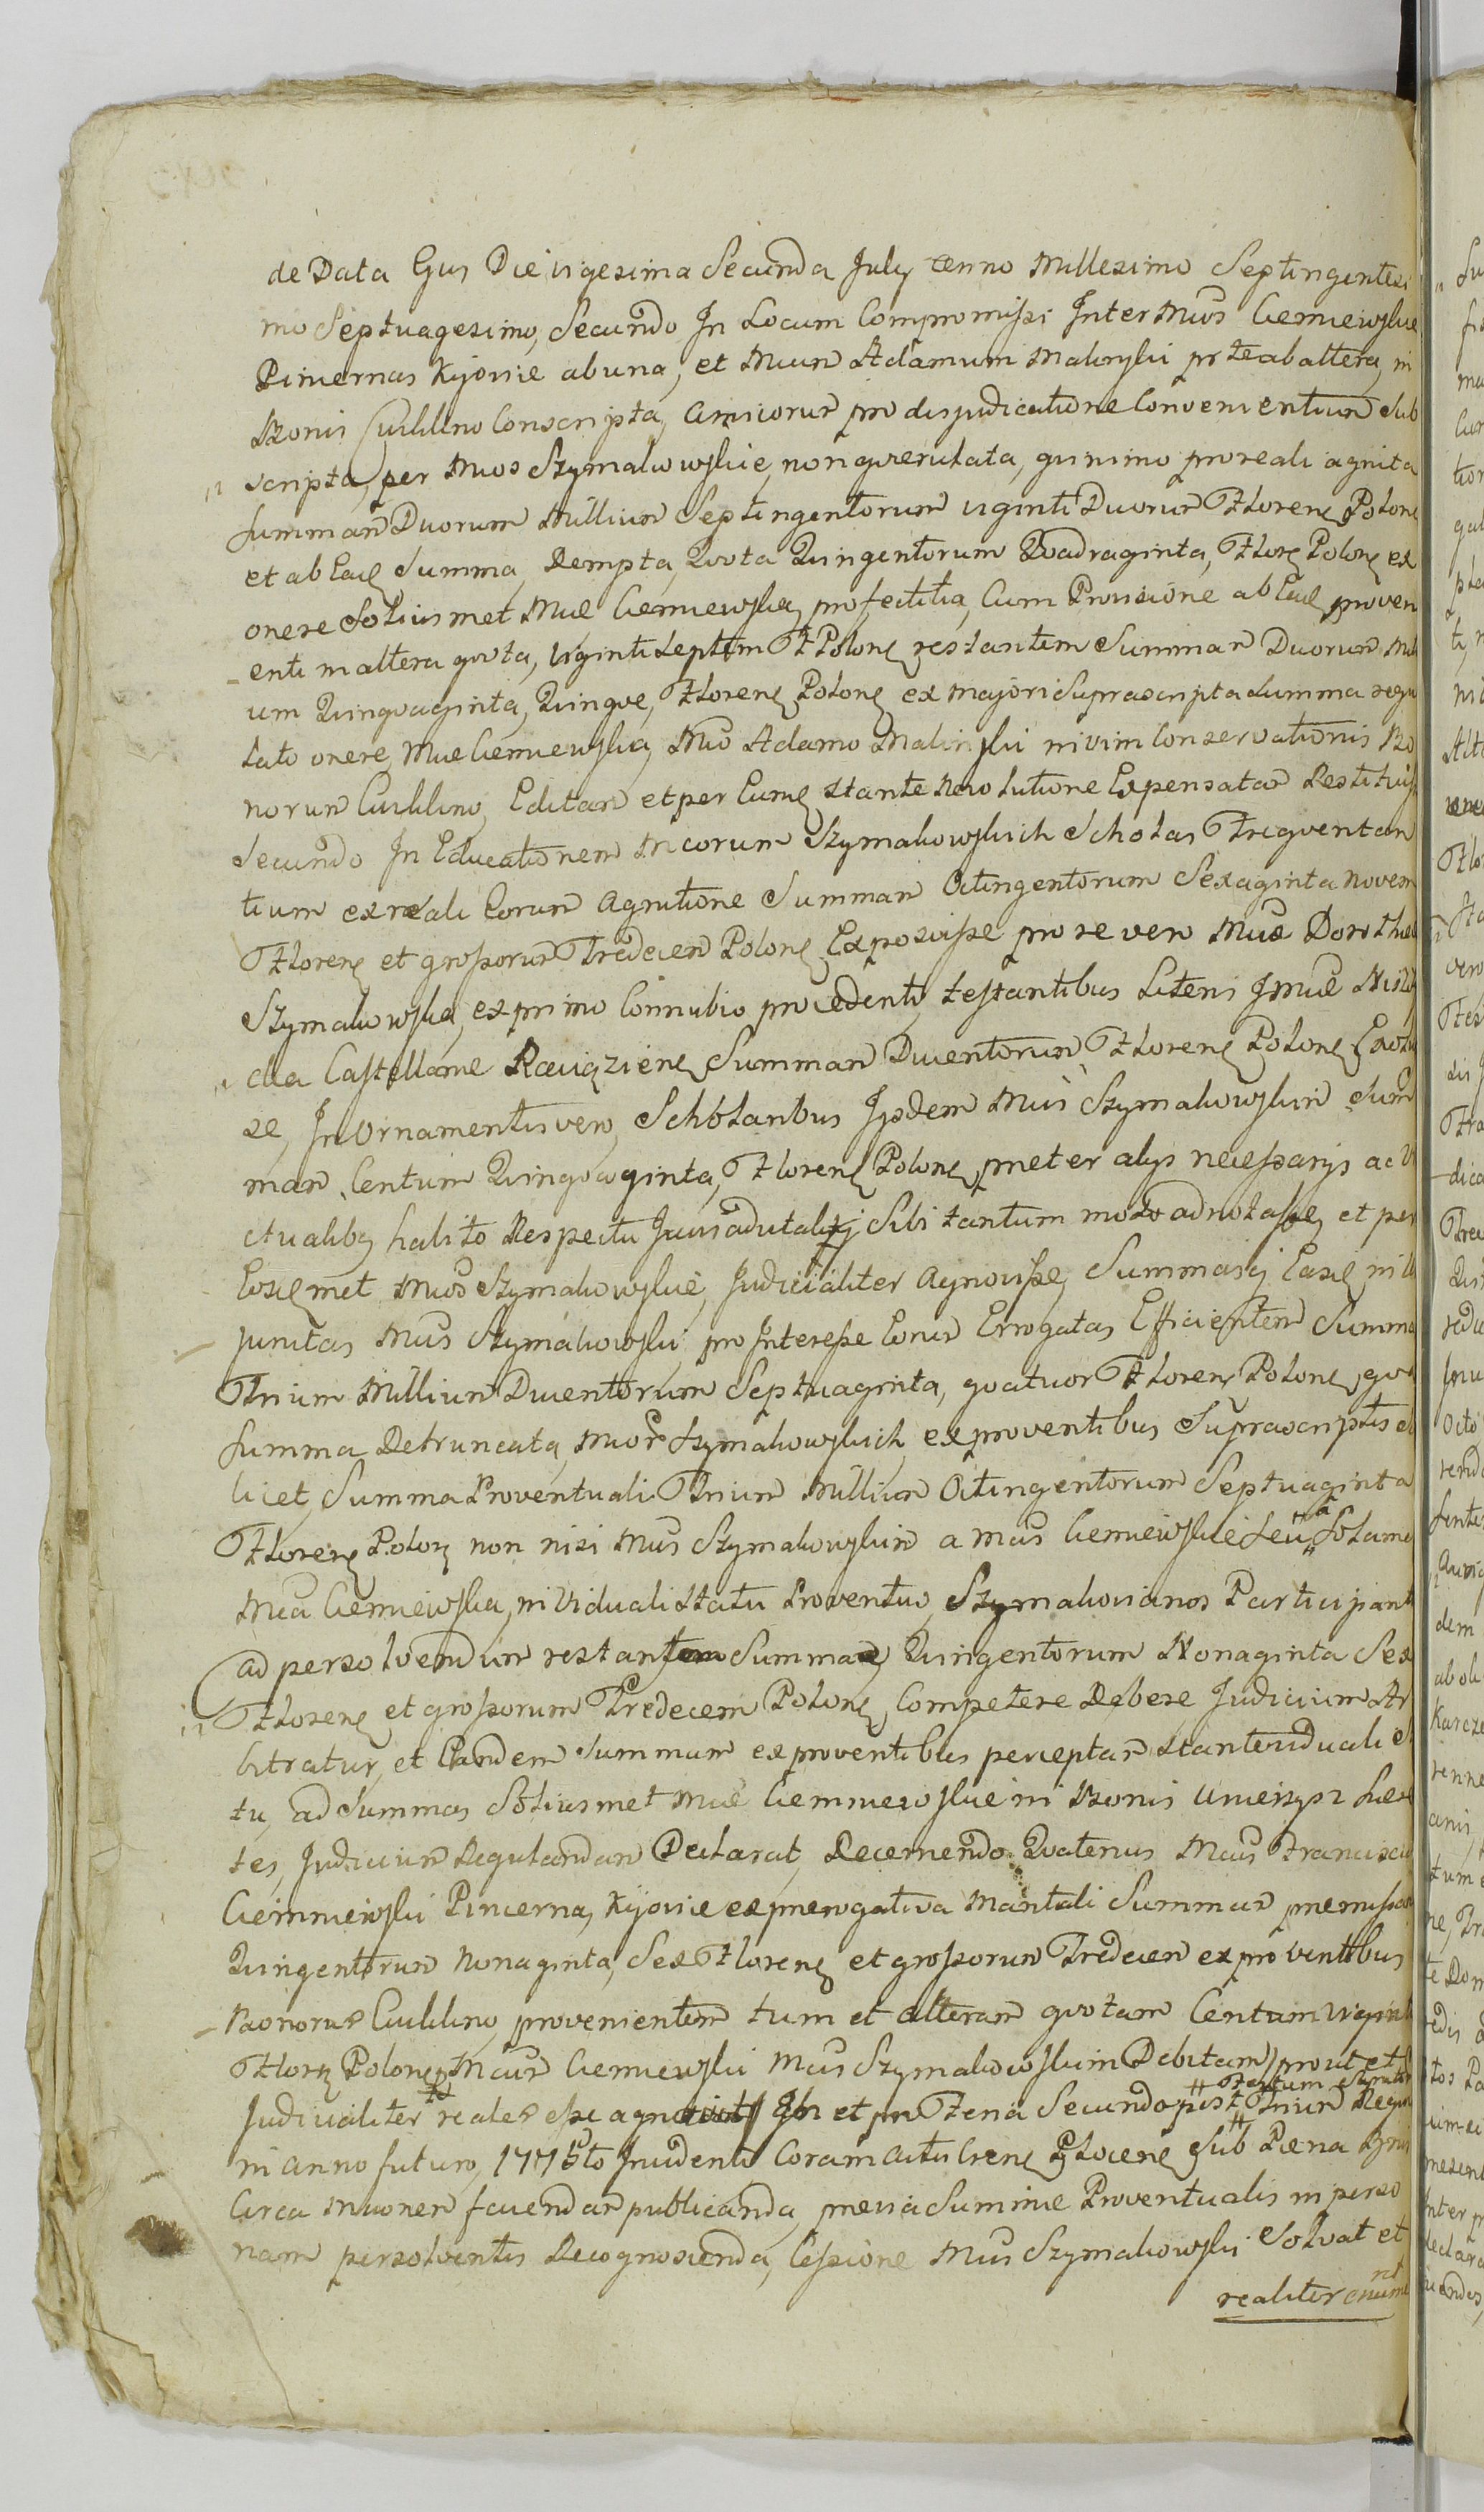 de Data Ejus Die vigesima Secunda July Anno Millesimo Septingentesi
mo Septuagesimo, Secundo In Locum Compromissi Inter Mcos Ciemiewskie
Pincernas Kijovie ab una, et Mcum Adamum Malinski pr te ab altera, in
Bonis Cuiklino Conscripta, Amicorum pro disjudicatione Convenientium Sub
scripta, per Mcos Szymakowskie, non qverulata, qvinimo pro reali agnita
Summam Duorum Millium Septingentorum viginti Duorum Floren Polon
et ab Ead Summa, Dempta, Qvota Qvingentorum Qvadraginta, Flor Polon ex
onere Solius met Mce Ciemiewska, profectitia, Cum Provisione ab Ead proven
enti in altera qvota, Viginti Septem F Polon restantem Summam Duorum Mil
um Qvinqvaginta, Qvinqve, Floren Polon ex majori Suprascripta Summa regu
lato onere, Mce Ciemiewska, Mco Adamo Malinski in vim Conservationis Bo
norum Cuiklino, Editam et per Eum stante Revolutione Expensatam Restituiss
Secundo In Educationem Mcorum Szymakowskich Scholas Freqventan
tium ex reali Eorum Agnitione Summam Octingentorum Sexaginta Novem
Floren et grossorum Tredecem Polon Exposuisse pro re vero Mce Dorothee
Szymakowska, ex primo Connubio procedenti, testantibus Literis
cka Castellane Raciązien Summam Ducentorum Floren Polon
se, In Ornamentis vero, Scholaribus Ipsdem Mcis Szymakowskim Sum
mam, Centum Qvinqvaginta, Floren Polon, preter alys necessarys ac Vi
ctualib habito Respectu Juris advitalit Sibi tantum modo adnotasse, et per
Eosd met Mcos Szymakowskie, Judicialiter Agnovisse, Summasq Easd in
junctas Mcis Szymakowski, pro Interesse Eorum Errogatas, Efficientem Summa
Trium Millium Ducentorum Septuaginta, qvatuor Floren Polon, qva
Summa Detruncata, Mcor Szymakowskich, ex proventibus Suprascriptis
licet, Summa Proventuali Trium Millium Octingentorum Septuaginta
Floren Polon non nisi Mcis Szymakowskim a Mcis Ciemiewskie Seu a Solame
Mca Ciemiewska, in Viduali Statu Proventus, Szymakovianos Participant
ad persolvendum restantem Summam, Qvingentorum Nonaginta Sex
Floren et grossorum Tredecem Polon, Competere Debere Judicium Ar
bitratur, et Eandem Summam ex proventibus perceptam stante viduali
tu, ad Summas Solius met Mce Ciemniewskie in Bonis
tes, Judicium Regulandam Declarat, Decernendo. Qvatenus Mcus Franciscus
Ciemniewski Pincerna, Kijovie ex prerogativa Maritali Summam premissam
Qvingentorum Nonaginta, Sex Floren et grossorum Tredecem ex proventibus
Bonorum Cuiklino, provenientem tum et alteram qvotam Centum viginti
Flor Polon per Mcum Ciemiewski Mcis Szymakowskim Debitam, prout et
Judicialiter reale esse agnovit et pro Feria Secunda post Festum Trium Regum
in Anno futuro, 1775to Incidenti Coram Actis Cren Plocen Sub Pena
Circa Mcionem faciendam publicanda, previa Summe Proventualis in perso
nam persolventis Recognoscenda, Cessione Mcis Szymakowski Solvat et
realiter enume